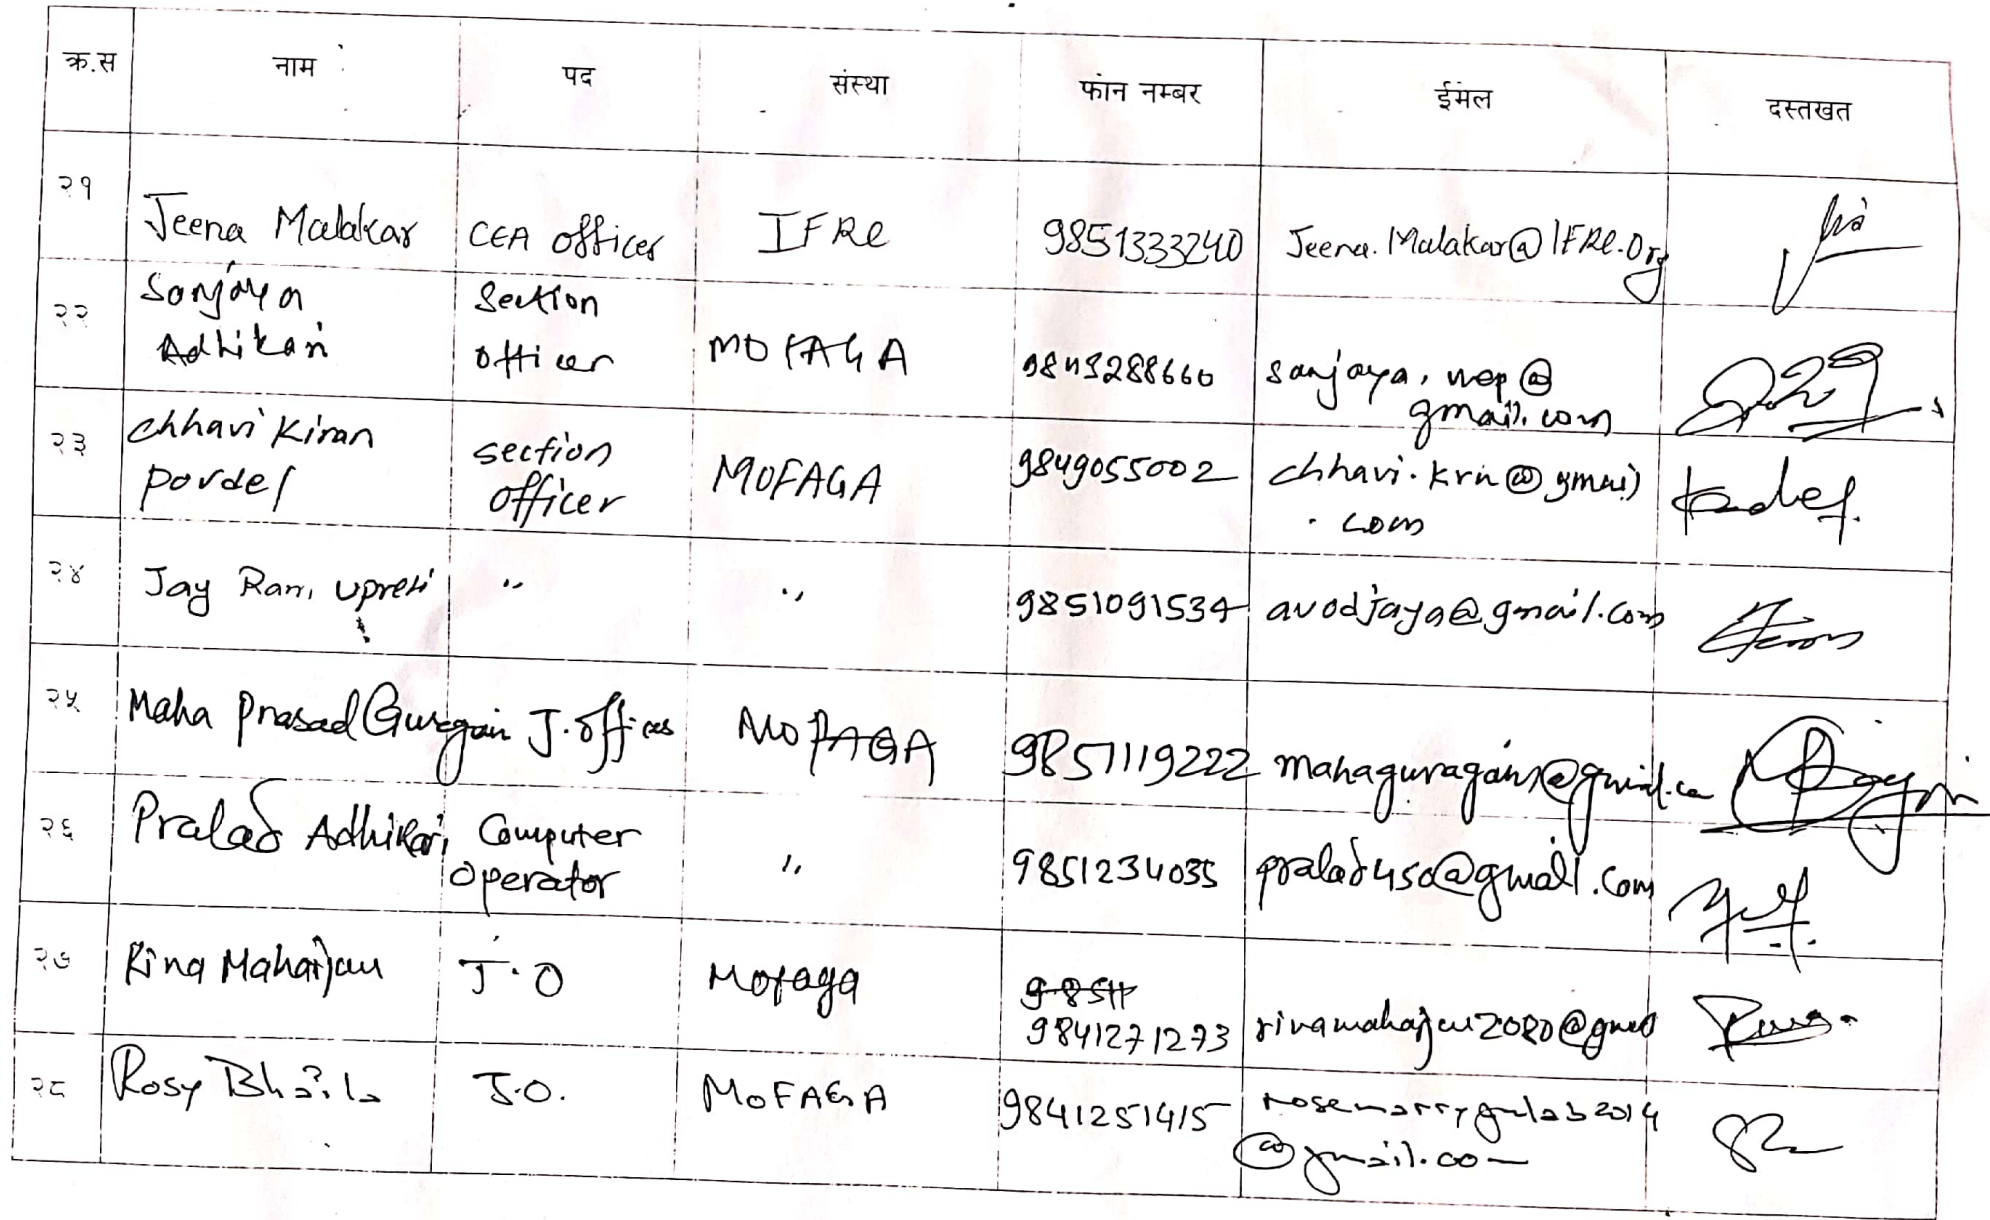 क्र.स नाम पद संस्था फोन नम्बर ईमेल दस्तखत
२१ Jeena Malakar CEA officer IFRC 9851333240 Jeena.Malakar@IFRC.Org
२२ Sanjaya Section
Adhikari officer MOFAGA 9843288660 sanjaya.nep@
gmail.com
२३ chhavi Kiran section MOFAGA 9849055002 chhavi.krn@gmail
Poudel officer .com
२४ Jay Ram Upreti " " 9851091534 avodjaya@gmail.com
२५ Maha Prasad Guragain J.officer MOFAGA 9851119222 mahaguragain@gmail.co
२६ Pralad Adhikari Computer " 9851234035 pralad450@gmail.com
Operator
२७ Rina Maharjan J.O Mofaga 98511
9841271273 rinamaharjan2020@gmail
२८ Rosy Bhaila J.O. MOFAGA 9841251415 rosemarrygulab2014
@gmail.com